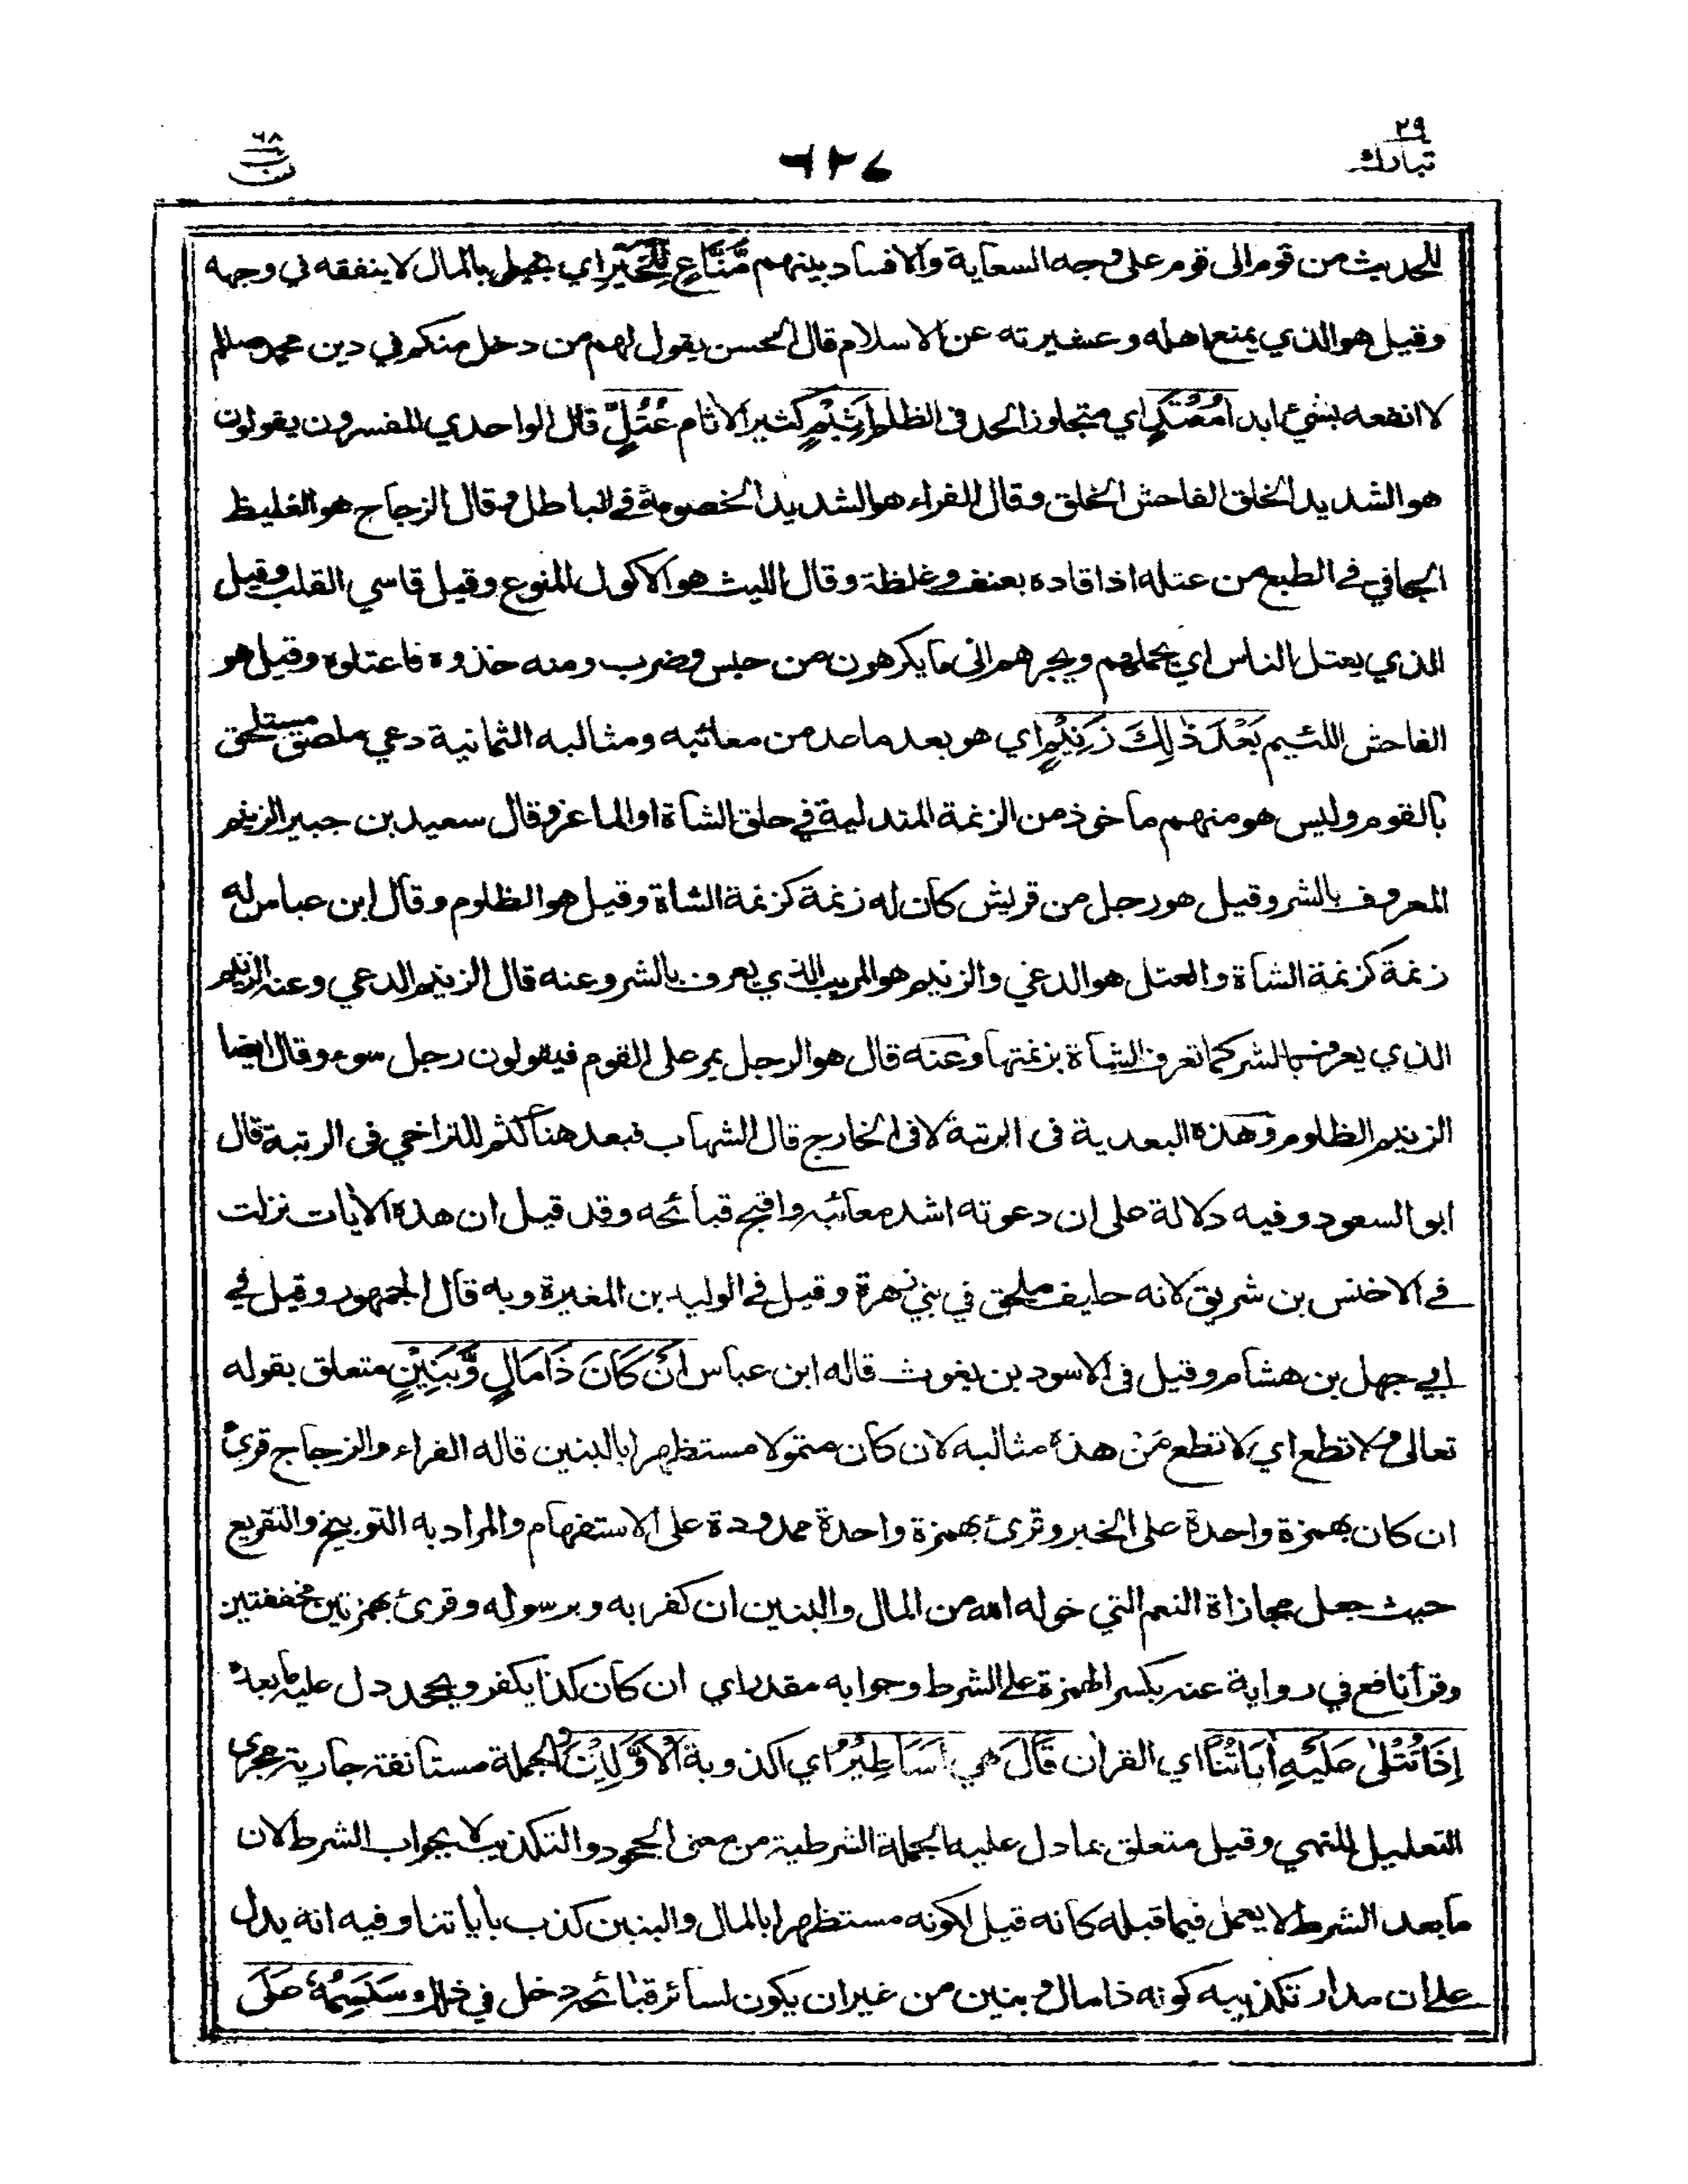 ٢٩
تبارك
٦٢٧
٦٨
ن
للحديث من قوم الى قوم على وجه السعاية والافساد بينهم مَّنَّاعٍ لِّلْخَيْرِ اي بخيل بالمال لا ينفقه في وجهه
وقيل هو الذي يمنع اهله وعشيرته عن الاسلام قال الحسن يقول لهم من دخل منكم في دين محمد صللم
لا انفعه بشئ ابدا مُعْتَدٍ اي متجاوز الحد في الظلم اَثِيْمٍ كثير الآثام عُتُلٍّ قال الواحدي المفسرون يقولون
هو الشديد الخلق الفاحش الخلق وقال الفراء هو الشديد الخصومة في الباطل وقال الزجاج هو الغليظ
الجافي في الطبع من عتله اذا قاده بعنف وغلظة وقال الليث هو الاكول المنوع وقيل قاسي القلب وقيل
الذي يعتل الناس اي يحملهم ويجرهم الى ما يكرهون من حبس وضرب ومنه خذوه فاعتلوه وقيل هو
الفاحش اللئيم بَعْدَ ذٰلِكَ زَنِيْمٍ اي هو بعد ما عد من معائبه ومثالبه الثمانية دعي ملصق مستلحق
بالقوم وليس هو منهم ماخوذ من الزنمة المتدلية في حلق الشاة او الماعز وقال سعيد بن جبير الزنيم
المعروف بالشر وقيل هو رجل من قريش كان له زنمة كزنمة الشاة وقيل هو الظلوم وقال ابن عباس له
زنمة كزنمة الشاة والعتل هو الدعي والزنيم هو المريب الذي يعرف بالشر وعنه قال الزنيم الدعي وعنه الزنيم
الذي يعرف بالشر كما تعرف الشاة بزنمتها وعنه قال هو الرجل يمر على القوم فيقولون رجل سوء وقال ايضا
الزنيم الظلوم وهذه البعدية في الرتبة لا في الخارج قال الشهاب فبعد هنا كثم للتراخي في الرتبة قال
ابو السعود وفيه دلالة على ان دعوته اشد معائبه واقبح قبائحه وقد قيل ان هذه الآيات نزلت
في الاخنس بن شريق لانه حليف ملحق في بني زهرة وقيل في الوليد بن المغيرة وبه قال الجمهور وقيل في
ابي جهل بن هشام وقيل في الاسود بن يغوث قاله ابن عباس اَنْ كَانَ ذَا مَالٍ وَّبَنِيْنٍ متعلق بقوله
تعالى ولا تطع اي لا تطع مَنْ هذه مثالبه لان كان متمولا مستظهرا بالبنين قاله الفراء والزجاج قرئ
ان كان بهمزة واحدة على الخبر وقرئ بهمزة واحدة ممدودة على الاستفهام والمراد به التوبيخ والتقريع
حيث جعل مجازاة النعم التي خوله الله من المال والبنين ان كفر به وبرسوله وقرئ بهمزتين مخففتين
وقرأ نافع في رواية عنه بكسر الهمزة على الشرط وجوابه مقدر اي ان كان كذا يكفر ويجحد دل عليه ما بعده
اِذَا تُتْلٰى عَلَيْهِ اٰيَاتُنَا اي القران قَالَ هي اَسَاطِيْرُ اي اكذوبة الْاَوَّلِيْنَ والجملة مستانفة جارية مجرى
التعليل للنهي وقيل متعلق بما دل عليه الجملة الشرطية من معنى الجحود والتكذيب لا بجواب الشرط لان
ما بعد الشرط لا يعمل فيما قبله كانه قيل لكونه مستظهرا بالمال والبنين كذب بأياتنا وفيه انه يدل
على ان مدار تكذيبه كونه ذا مال وبنين من غير ان يكون لسائر قبائحه دخل في ذلك سَنَسِمُهٗ عَلَى